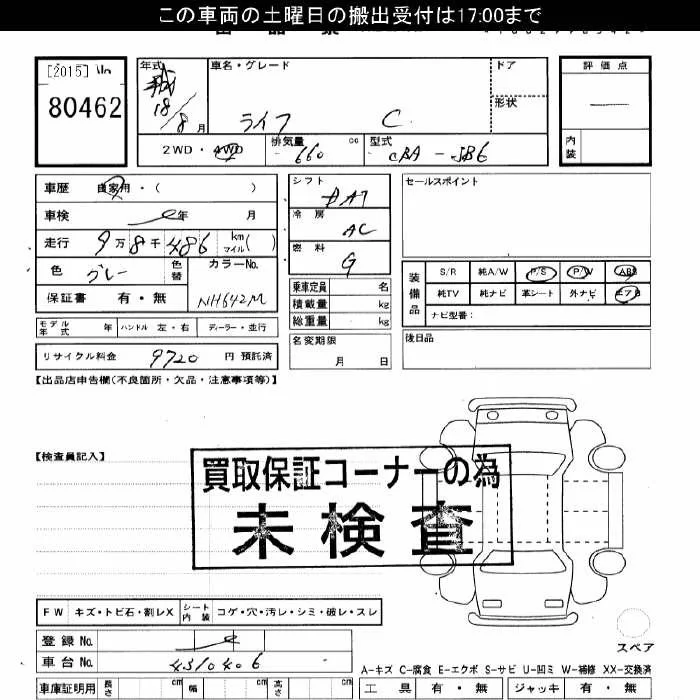 この車両の土曜日の搬出受付は17:00まで
[2015]
80462
年式
18/8月
車名・グレード
ライフ C
ドア
形状
評価点
内装
2WD・4WD
排気量 660 cc
型式 CBA-JB6
車歴 自家用・( )
車検 年 月
走行 9万8千486 km マイル( )
色 グレー
色替
カラーNo. NH642M
保証書 有・無
シフト DAT
冷房 AC
燃料 G
乗車定員 名
積載量 kg
総重量 kg
名変期限 月 日
セールスポイント
装備品
S/R 純A/W P/S P/W ABS
純TV 純ナビ 革シート 外ナビ エアB
ナビ型番:
後日品
モデル年式 年 ハンドル 左・右 ディーラー・並行
リサイクル料金 9720 円 預託済
【出品店申告欄(不良箇所・欠品・注意事項等)】
【検査員記入】
買取保証コーナーの為
未検査
FW キズ・トビ石・割レX シート内装 コゲ・穴・汚レ・シミ・破レ・スレ
登録No.
車台No. 4310406
スペア
A-キズ C-腐食 E-エクボ S-サビ U-凹ミ W-補修 XX-交換済
車庫証明用 長さ cm 幅 cm 高さ cm
工具 有・無 ジャッキ 有・無